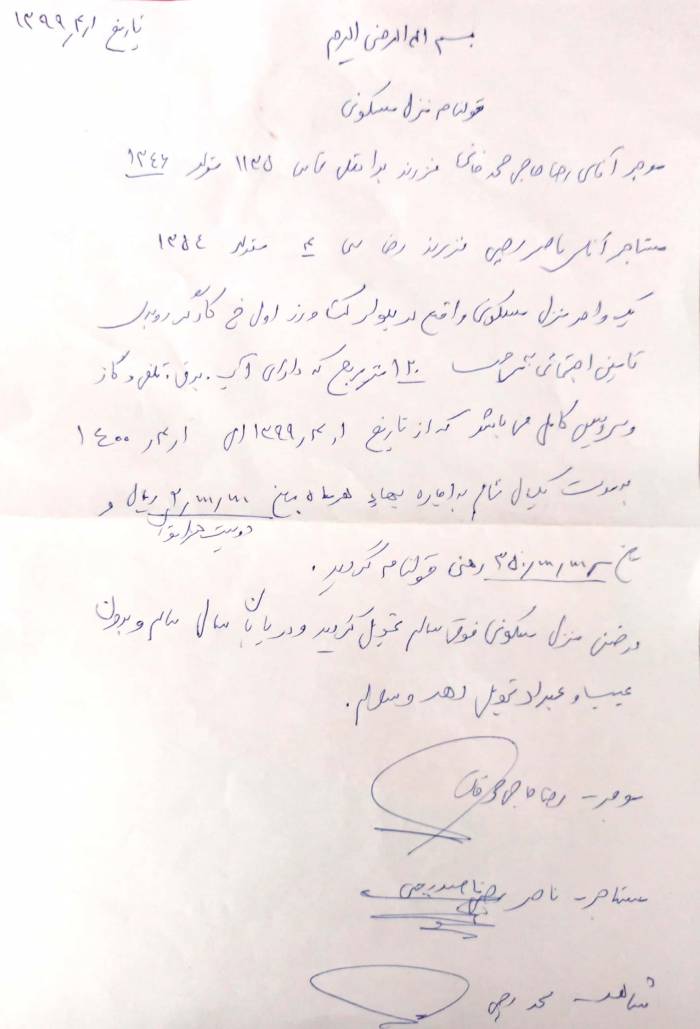 تاریخ ۱ر۴ر۱۳۹۹
بسم الله الرحمن الرحیم
قولنامه منزل مسکونی
موجر آقای رضا حاجی محمد خانی فرزند ش ۱۱۳۵ متولد ۱۳۴۶
مستاجر آقای ناصر رجبی فرزند رضا ش ۴ متولد ۱۳۵۴
یک واحد منزل مسکونی واقع در بلوار کشاورز اول خ کارگر روبروی
تامین اجتماعی به مساحت ۱۲۰ متر مربع که دارای آب، برق، تلفن و گاز
و سرویس کامل می باشد که از تاریخ ۱ر۴ر۱۳۹۹ الی ۱ر۴ر۱۴۰۰
به مدت یکسال تمام به اجاره هر ماه مبلغ ۲/۰۰۰/۰۰۰ ریال و
دویست هزار تومان
مبلغ ۳۵۰/۰۰۰/۰۰۰ رهنی قولنامه گردید.
در ضمن منزل مسکونی فوق سالم تحویل گردید و در پایان سال سالم و بدون
عیب و تحویل دهد والسلام.
موجر - رضا حاجی محمد خانی
مستاجر - ناصر رجبی
شاهد - محمد رجبی